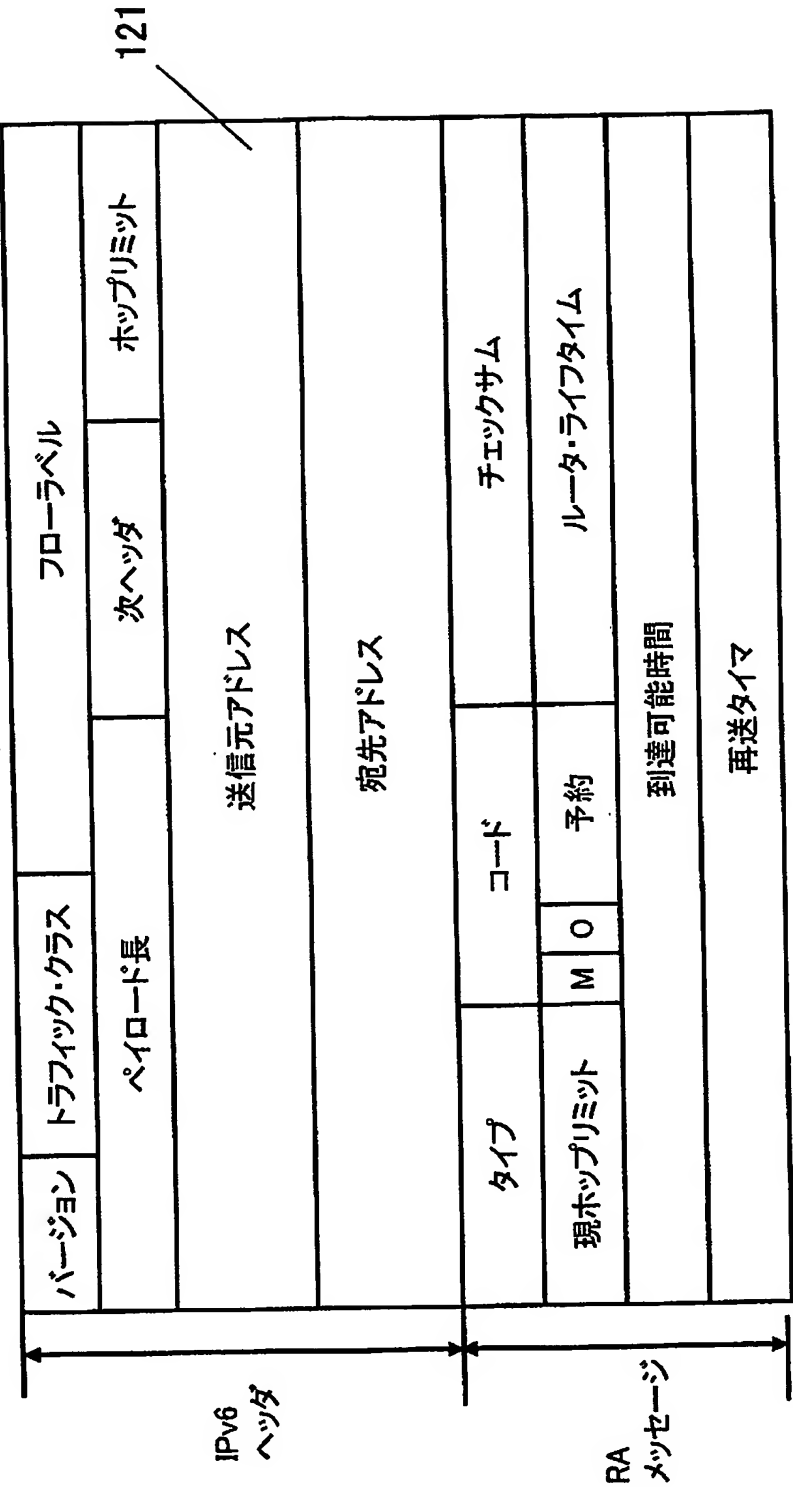 IPv6
ヘッダ
バージョン
トラフィック・クラス
フローラベル
ペイロード長
次ヘッダ
ホップリミット
送信元アドレス
121
宛先アドレス
RA
メッセージ
タイプ
コード
チェックサム
現ホップリミット
M
O
予約
ルータ・ライフタイム
到達可能時間
再送タイマ